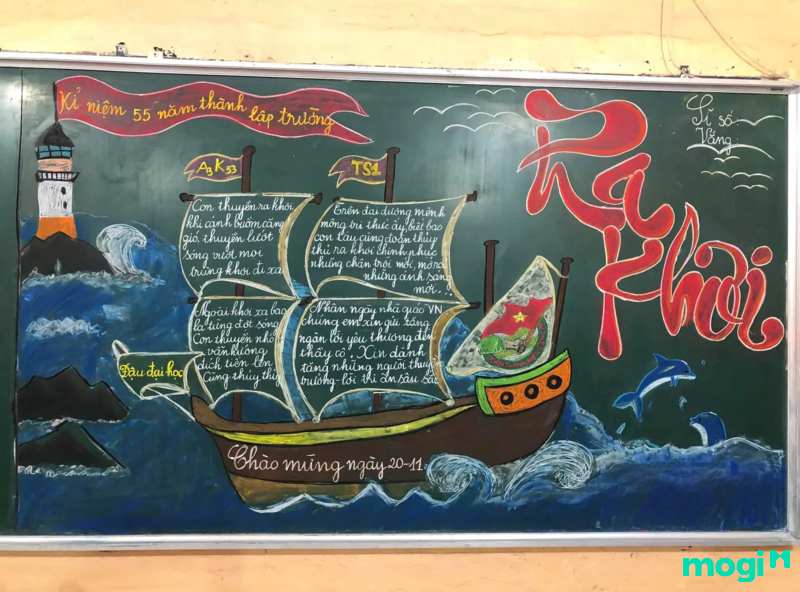 Kỉ niệm 55 năm thành lập trường
Sĩ số
Vắng
Ra
Khơi
A3K53
TS1
Con thuyền ra khơi
khi cánh buồm căng
gió, thuyền lướt
sóng vượt mọi
trùng khơi đi xa
Trên đại dương mênh
mông tri thức ấy, biết bao
con tay cùng đoàn thủy
thủ ra khơi chinh phục
những chân trời mới, mở ra
những ánh sáng
mới...
Ngoài khơi xa bao
la từng đợt sóng
Con thuyền nhỏ
vẫn hướng
đích tiến lên
Cùng thủy thủ
Nhân ngày nhà giáo VN
chúng em xin gửi vàng
ngàn lời yêu thương đến
thầy cô. Xin dành
tặng những người thuyền
trưởng-lời tri ân sâu sắc
Đậu đại học
Chào mừng ngày 20-11
mogi